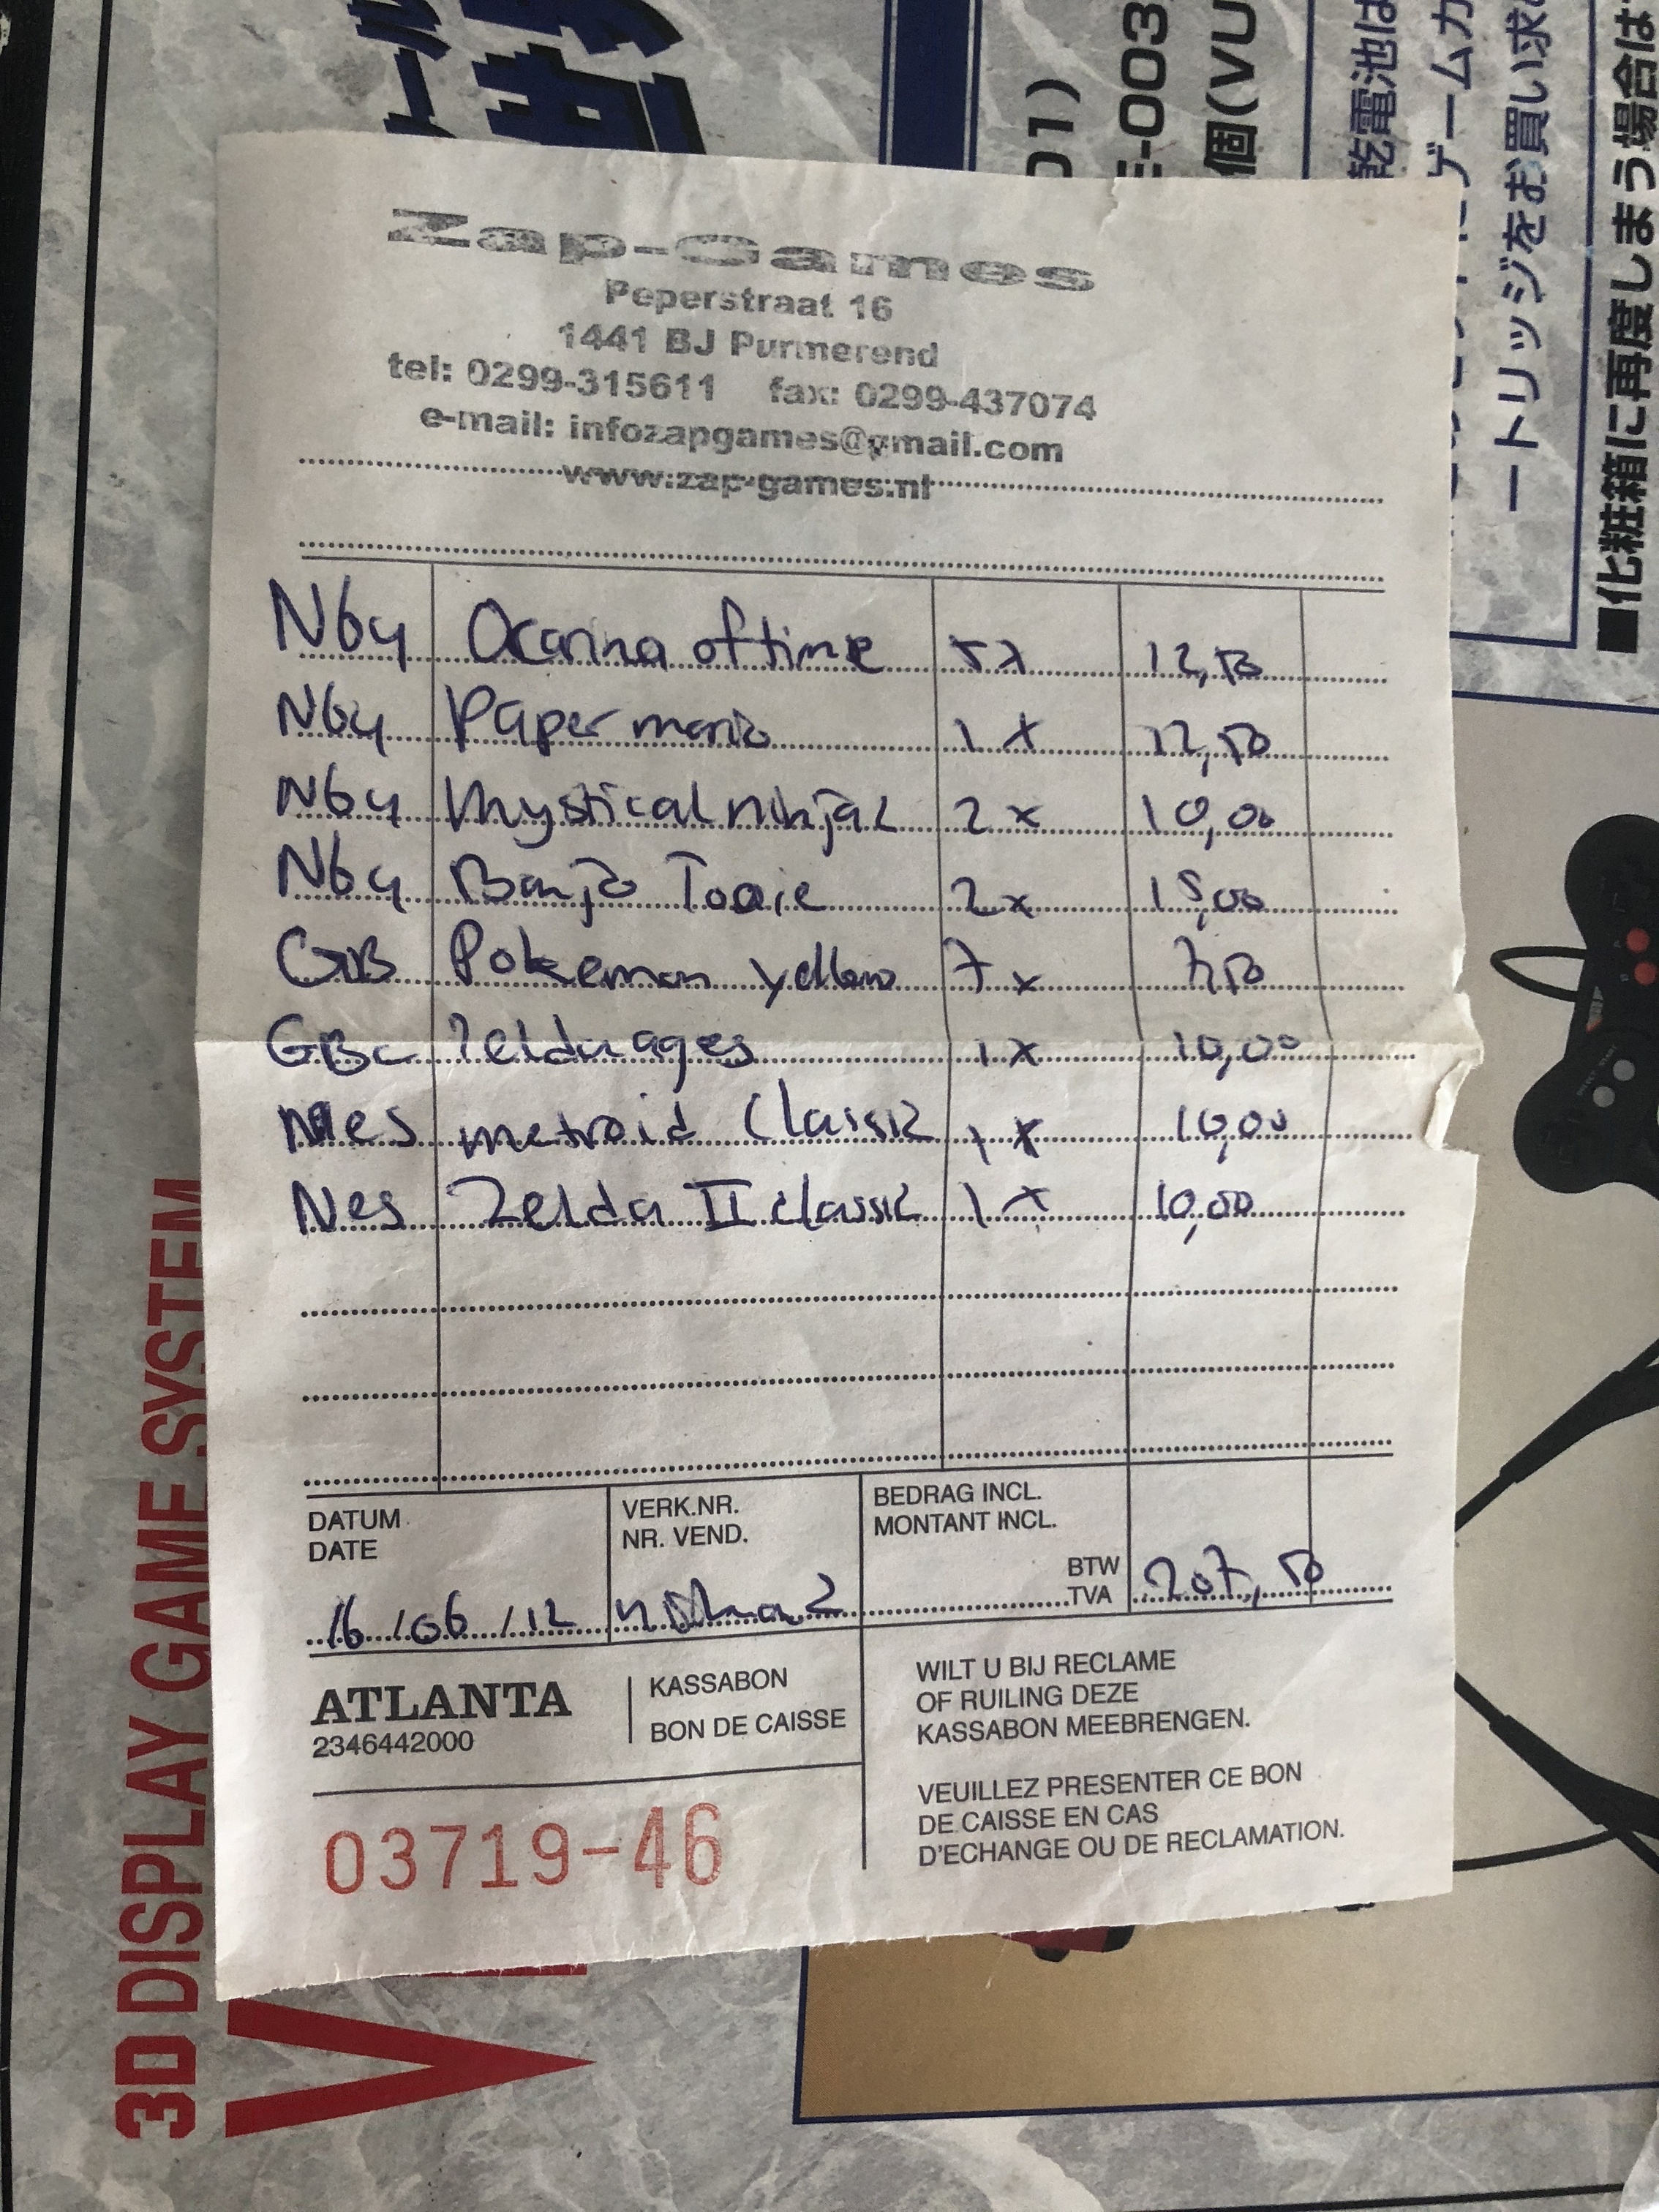 Zap-Games
Peperstraat 16
1441 BJ Purmerend
tel: 0299-315611 fax: 0299-437074
e-mail: infozapgames@gmail.com
www.zap-games.nl
N64 Ocarina of time 5x 12,50
N64 Paper mario 1x 12,50
N64 Mystical ninja 2 2x 10,00
N64 Banjo Tooie 2x 15,00
GB Pokemon yellow 7x 7,50
GBC Zelda ages 1x 10,00
Nes metroid Classic 1x 10,00
Nes Zelda II classic 1x 10,00
DATUM
DATE
16/06/12
VERK.NR.
NR. VEND.
BEDRAG INCL.
MONTANT INCL.
BTW
TVA
207,50
ATLANTA
2346442000
KASSABON
BON DE CAISSE
03719-46
WILT U BIJ RECLAME
OF RUILING DEZE
KASSABON MEEBRENGEN.
VEUILLEZ PRESENTER CE BON
DE CAISSE EN CAS
D'ECHANGE OU DE RECLAMATION.
3D DISPLAY GAME SYSTEM
V
01)
E-003
個(VU
乾電池は
ゲームカ
ートリッジをお買い求め
■化粧箱に再度しまう場合は